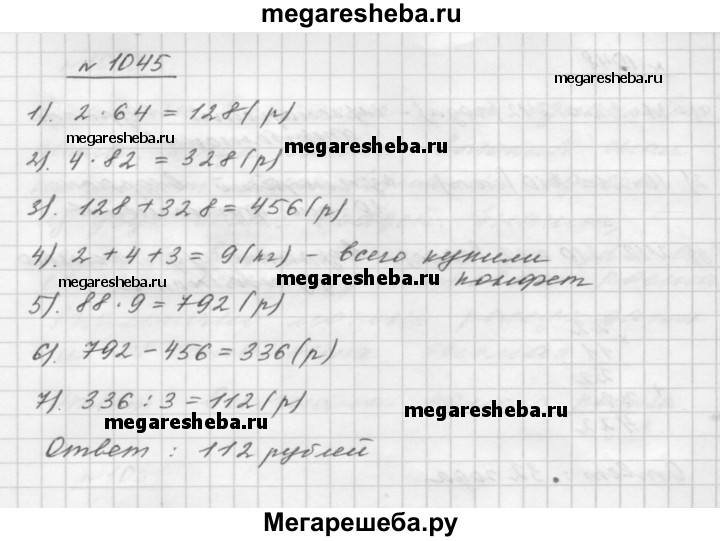 megaresheba.ru
№ 1045
megaresheba.ru
1). 2 · 64 = 128 (р)
megaresheba.ru
megaresheba.ru
2). 4 · 82 = 328 (р)
3). 128 + 328 = 456 (р)
4). 2 + 4 + 3 = 9 (кг) - всего купили
конфет
megaresheba.ru
megaresheba.ru
5). 88 · 9 = 792 (р)
6). 792 - 456 = 336 (р)
7). 336 : 3 = 112 (р)
megaresheba.ru
megaresheba.ru
Ответ : 112 рублей
Мегарешеба.ру